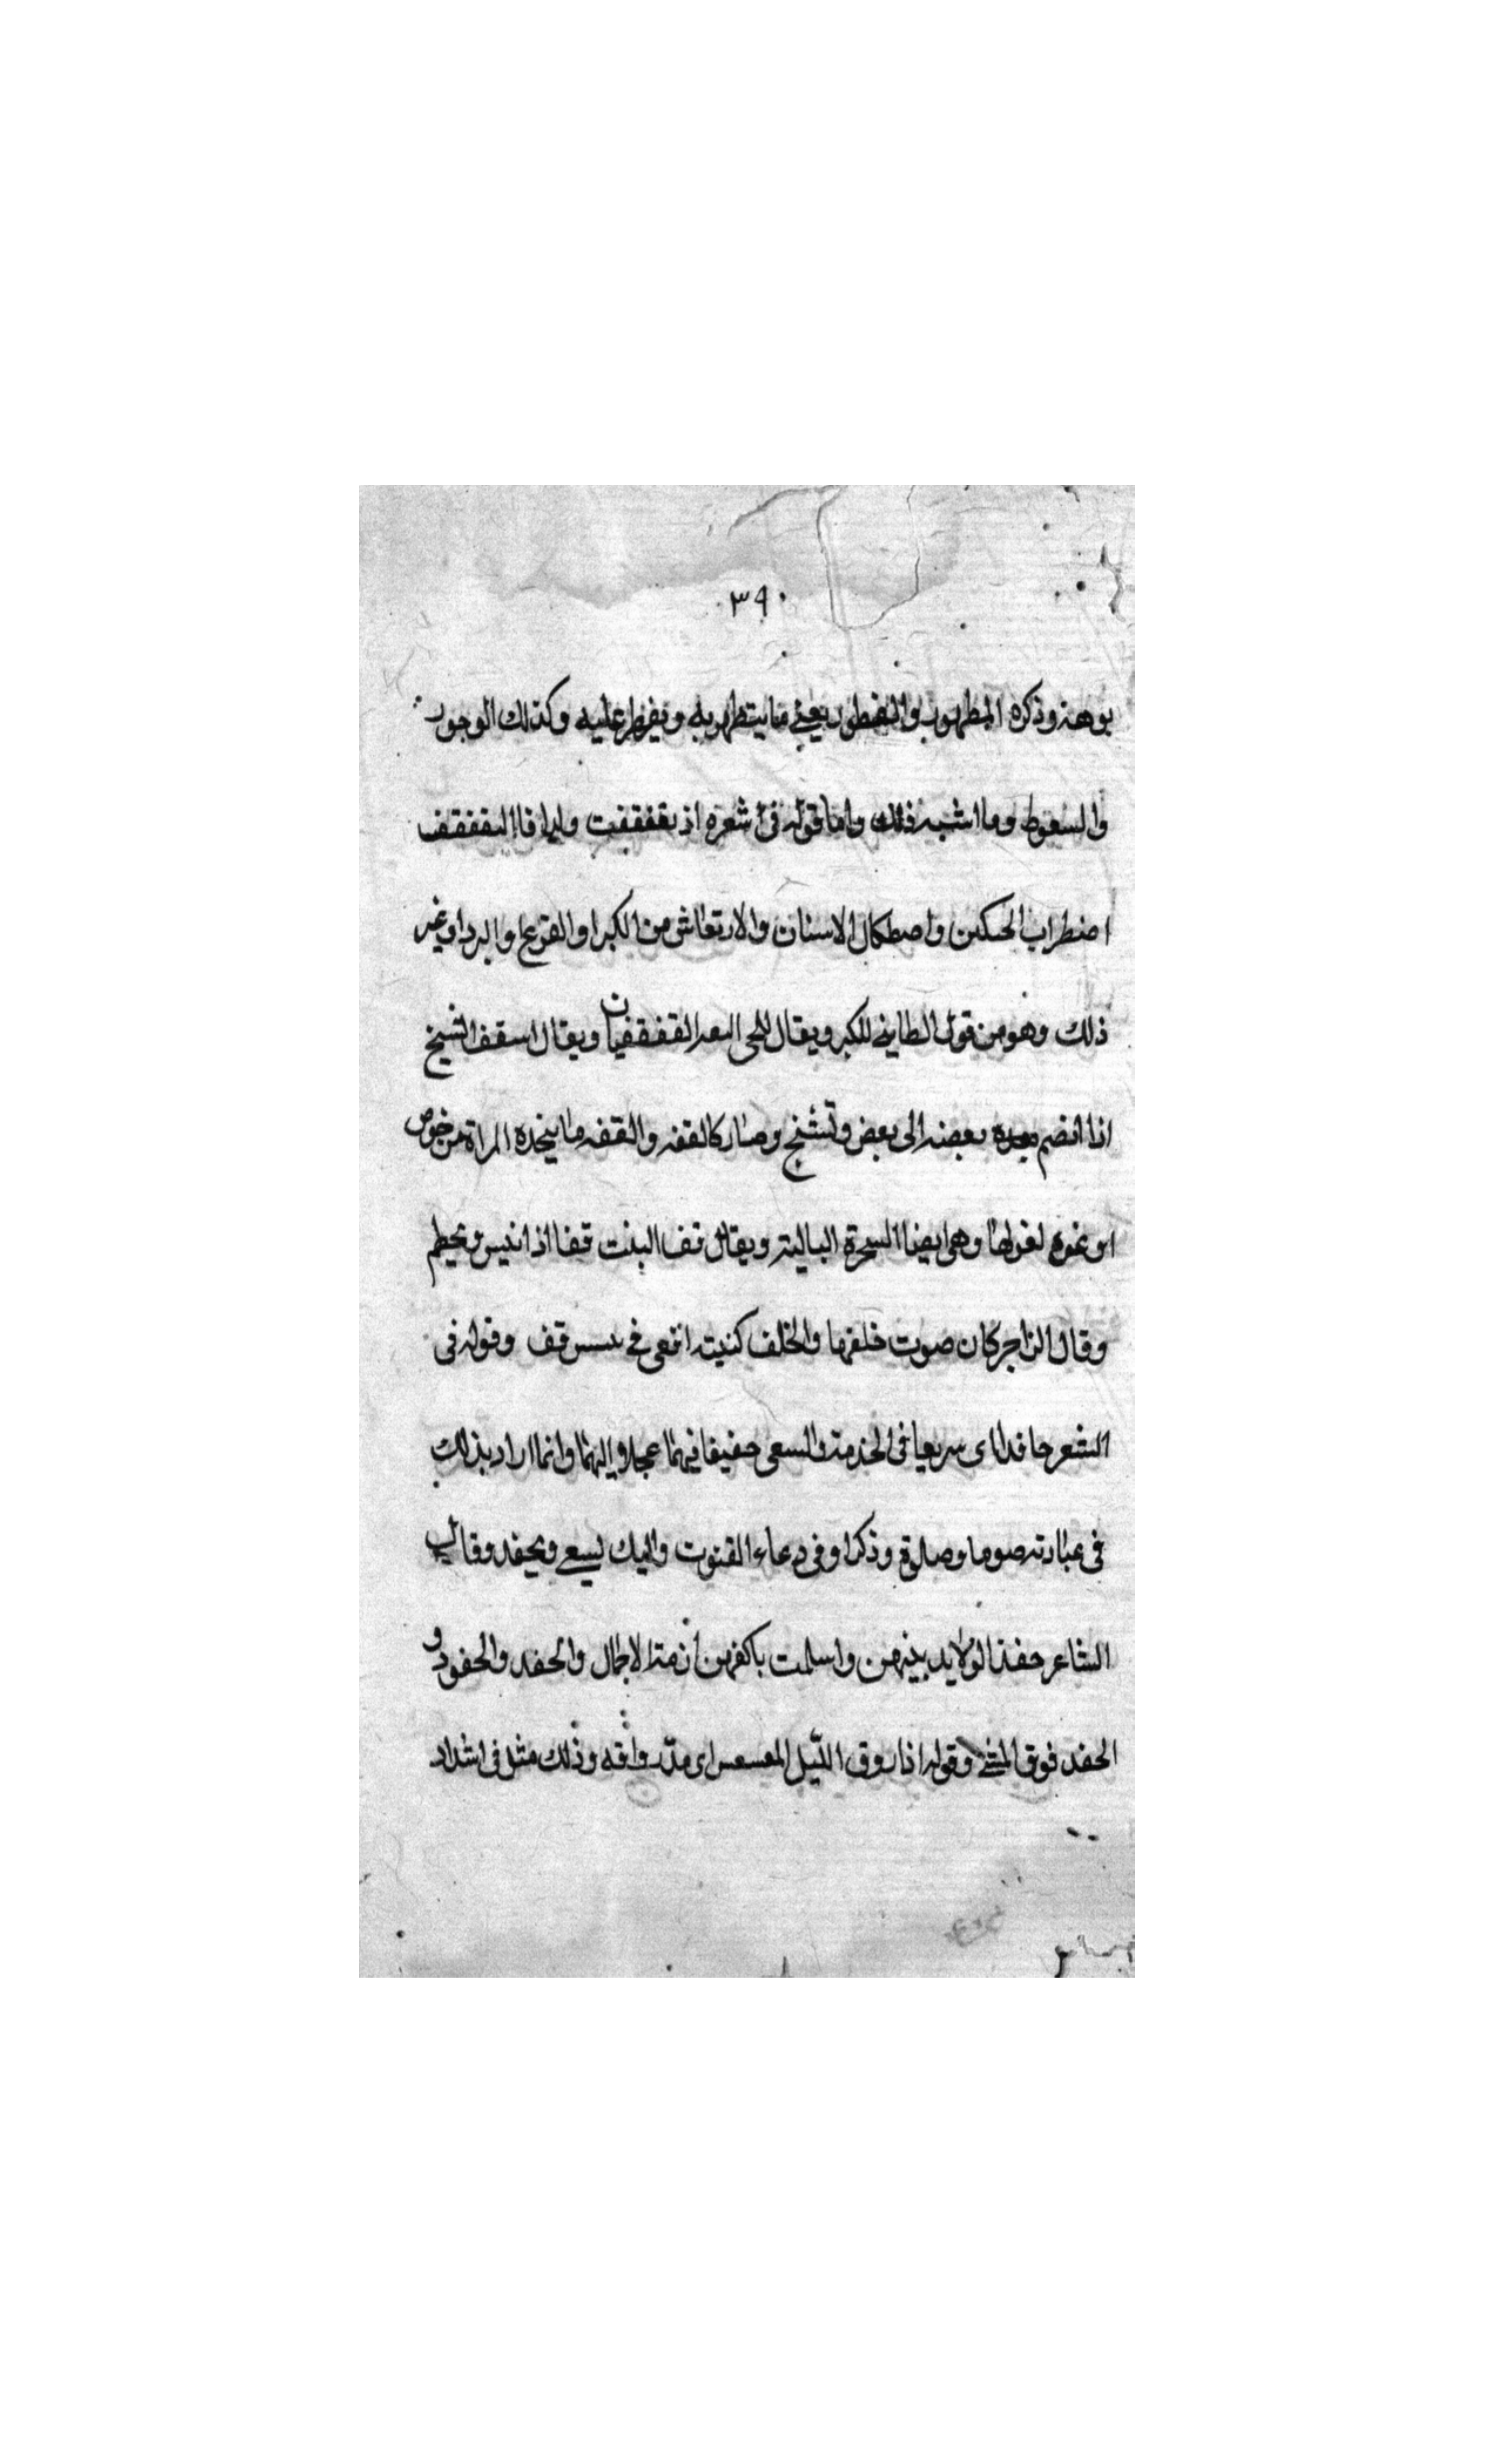 ٣٩٠
وذكره الطهور والفطور يعني ما يتطهر به ويفطر عليه وكذلك الوجور
والسعوط وما اشبه ذلك واما قوله في شعره اذ تقفقفت وليلا فاالتقفقف
اضطراب الحنكين واصطكاك الاسنان والارتعاش من الكبر او الفزع او البرد او غير
ذلك وهو من قول الطايي للكبر ويقال للحى البعير القفقفان ويقال استقف الشيخ
اذا انضم بعضه الى بعض وتشنج وصار كالقفه والقفه ما يتخذه المراة من خوص
او نحوه لغزلها وهى ايضا الشجرة الباليه ويقال قف النبت قفا اذا يبس وتحطم
وقال الراجز كان صوت خلفها والخلف كشيته افعى في يبيس قف وقوله في
الشعر حافدا اى سريعا في الخدمة والسعى خفيفا فيهما عجلا واليهما وانما اراد بذلك
في عبادته صوما وصلاة وذكرا وفي دعاء القنوت واليك نسعى ونحفد وقال
الشاعر حفد الولايد بينهن واسلمت باكفهن ازمة الاجمال والحفد والحفود و
الحفد فوق المشي وقوله اذا روق الليل المعسعس اى مد رواقه وذلك مثل في اشتداد